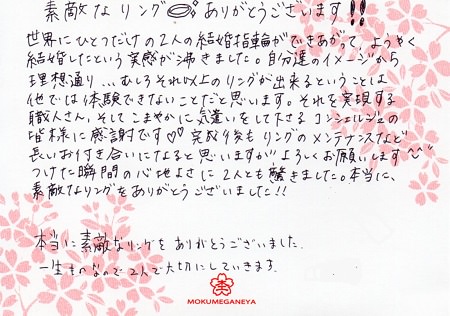 素敵なリング ありがとうございます!!
世界にひとつだけの2人の結婚指輪ができあがって、ようやく
結婚したという実感が沸きました。自分達のイメージから
理想通り...むしろそれ以上のリングが出来るということは
他では体験できないことだと思います。それを実現する
職人さん、そしてこまやかに気遣いをして下さるコンシェルジュの
皆様に感謝です♡♡ 完成後も リングのメンテナンスなど
長いお付き合いになると思いますが よろしくお願いします^^
つけた瞬間の心地よさに 2人とも驚きました。本当に、
素敵なリングをありがとうございました!!
本当に素敵なリングを ありがとうございました。
一生ものなので 2人で大切にしていきます。
MOKUMEGANEYA